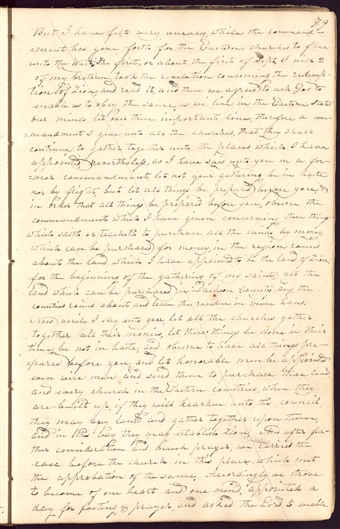 79
But I have felt very uneasy, while the command-
ment has gone forth for the Eastern churches to flee
unto the West the first, or about the first of Sept. I with 2
of my brethren took the revelation concerning the redemp-
tion of Zion, and read it, and then we agreed to ask God to
enable us to obey the same, as we live in the Eastern States
our minds lit on these important lines, therefore a com-
mandment I give unto all the churches, that they shall
continue to gather together unto the places which I have
appointed nevertheless, as I have said unto you in a for-
mer commandment, let not your gathering be in haste
nor by flight, but let all things be prepared before you, &
in order that all things be prepared before you, observe the
commandment which I have given concerning these things
which saith or teacheth to purchase all the lands by money
which can be purchased for money, in the region round
about the land which I have appointed to be the land of Zion
for the beginning of the gathering of my saints; all the
land which can be purchased in Jackson county, and the
counties round about and leave the residue in mine hand.
Now verily I say unto you, let all the churches gather
together all their monies, let these things be done in their
time be not in haste, and observe to have all things pre-
pared before you, and let honorable men be appointed
even wise men and send them to purchase these lands
and every church in the Eastern countries when they
are built up, if they will hearken unto this council
they may buy lands and gather together upon them,
and in this way they may establish Zion. And after fur-
ther consideration and much prayer, we carried the
case before the church in this place, which met
the approbation of the same. Accordingly we strove
to become of one heart and one mind, appointed a
day for fasting & prayer, and asked the Lord to enable